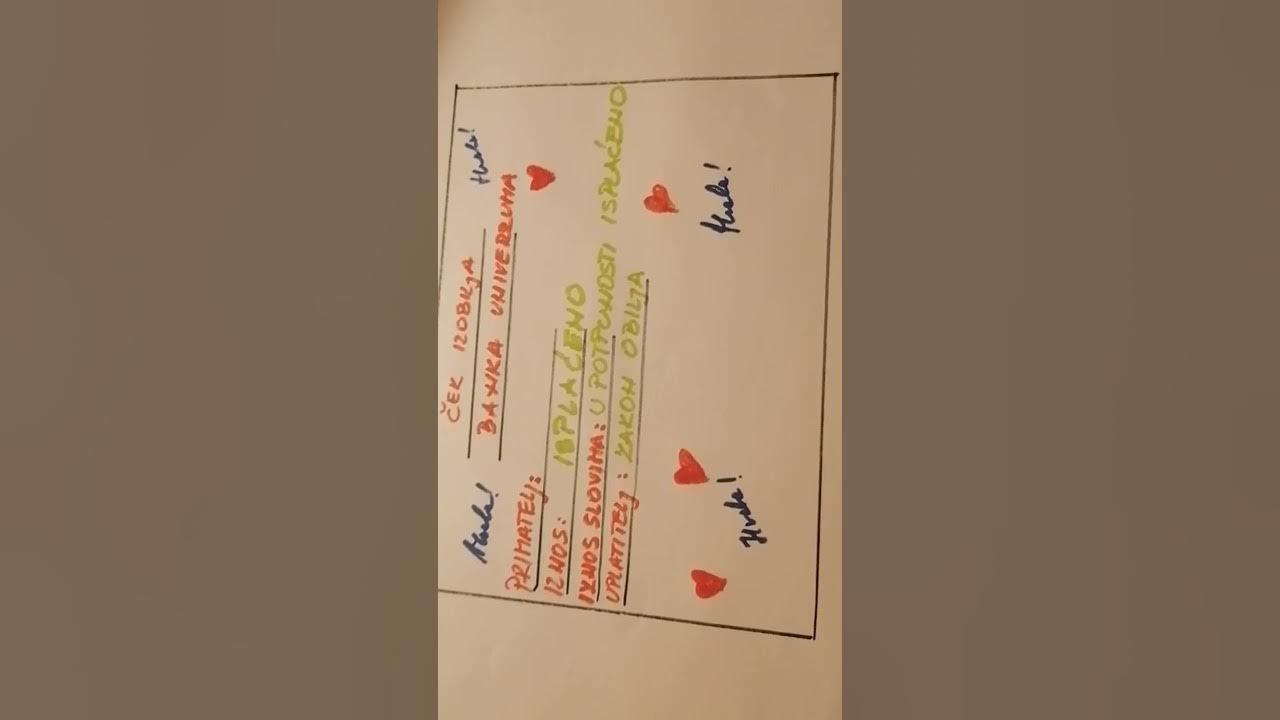 ČEK IZOBILJA
Hvala! BANKA UNIVERZUMA Hvala!
PRIMATELJ:
IZNOS: ISPLAĆENO
IZNOS SLOVIMA: U POTPUNOSTI ISPLAĆENO
UPLATITELJ: ZAKON OBILJA
Hvala! Hvala!